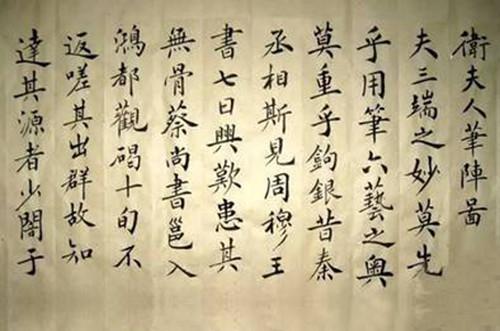 衛夫人筆陣啚
夫三端之妙莫先
乎用筆六藝之奧
莫重乎鉤銀昔秦
丞相斯見周穆王
書七日興歎患其
無骨蔡尚書邕入
鴻都觀碣十旬不
返嗟其出群故知
達其源者少闇于